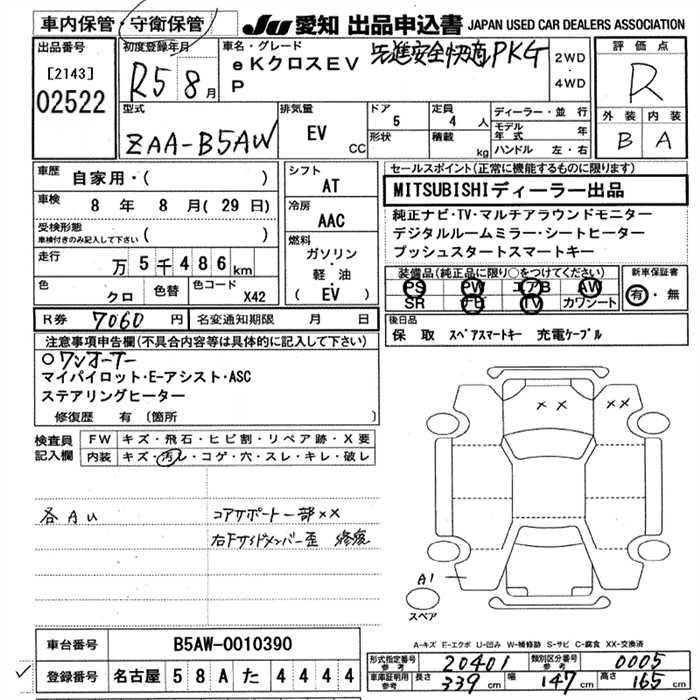 車内保管・守衛保管
JU 愛知 出品申込書 JAPAN USED CAR DEALERS ASSOCIATION
出品番号
[2143]
02522
初度登録年月
R5 8月
車名・グレード
eKクロスEV 先進安全快適PKG
P
2WD
・
4WD
評価点
R
外装 内装
B A
型式
ZAA-B5AW
排気量
EV
CC
ドア
5
形状
定員
4 人
積載
kg
ディーラー・並行
モデル年式 年
ハンドル 左・右
車歴
自家用・( )
車検
8 年 8 月( 29 日)
受検形態
車検付きのみ記入して下さい ( )
走行
万 5 千 4 8 6 km
色
クロ
色替
色コード
X42
シフト
AT
冷房
AAC
燃料
ガソリン
・
軽・油
( EV )
セールスポイント(正常に機能するものに限ります)
MITSUBISHIディーラー出品
純正ナビ・TV・マルチアラウンドモニター
デジタルルームミラー・シートヒーター
プッシュスタートスマートキー
装備品(純正品に限り○をつけてください)
PS PW エアB AW
SR ナビ TV カワシート
新車保証書
有・無
後日品
保 取 スペアスマートキー 充電ケーブル
R券 7060 円 名変通知期限 月 日
注意事項申告欄(不具合内容等は具体的に記入して下さい)
○ワンオーナー
マイパイロット・E-アシスト・ASC
ステアリングヒーター
修復歴 有 (箇所 )
検査員記入欄
FW キズ・飛石・ヒビ割・リペア跡・X要
内装 キズ・汚レ・コゲ・穴・スレ・キレ・破レ
各AU
コアサポート一部××
右Fサイドメンバー歪 修復
×× ××
A1
スペア
A-キズ E-エクボ U-凹み W-補修跡 S-サビ C-腐食 XX-交換済
車台番号 B5AW-0010390
登録番号 名古屋 5 8 A た 4 4 4 4
型式指定番号 参考 20401 類別区分番号 参考 0005
車庫証明用 参考 長さ 339 cm 幅 147 cm 高さ 165 cm